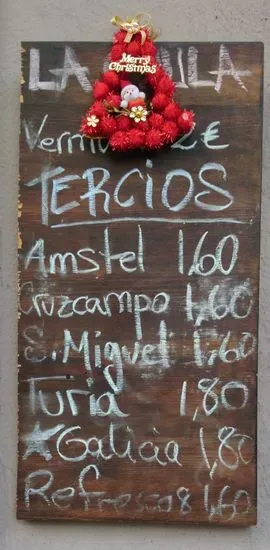 LA
Merry
Christmas
2€
TERCIOS
Amstel 1,60
Cruzcampo 1,60
S. Miguel 1,60
Turia 1,80
Galicia 1,80
Refrescos 1,60